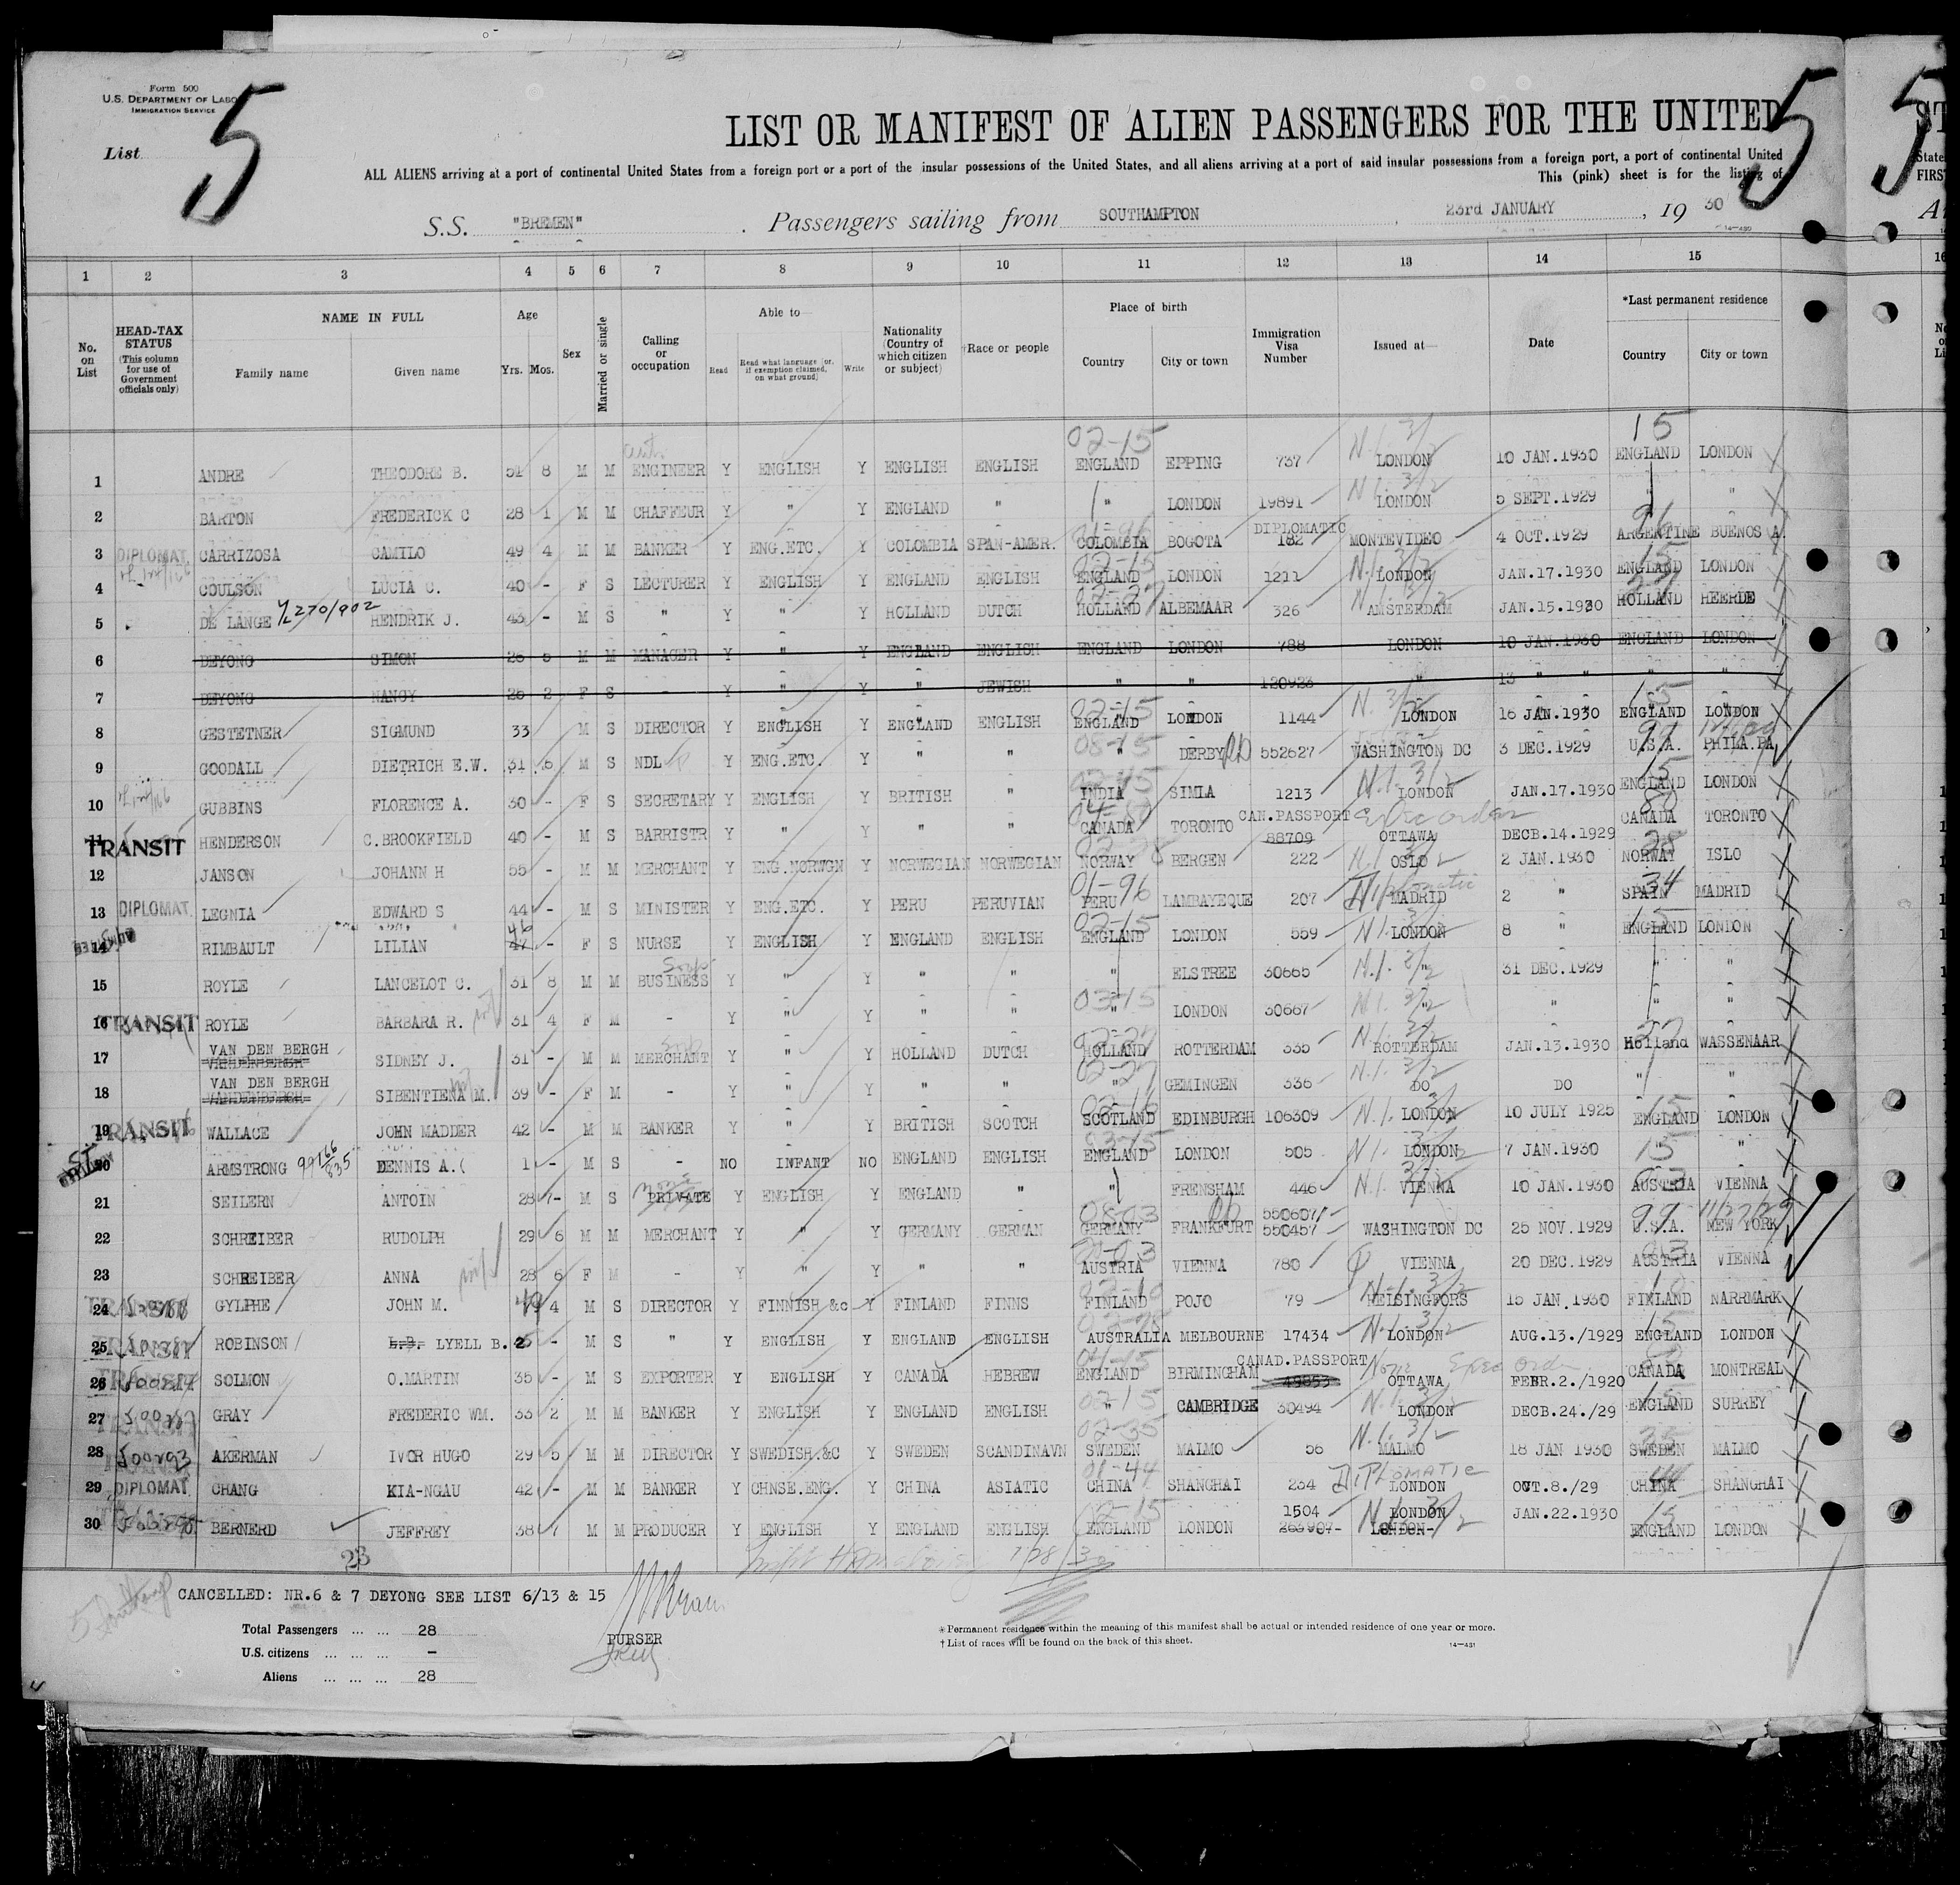 Form 500
U.S. DEPARTMENT OF LABO
IMMIGRATION SERVICE
List 5
5
5
LIST OR MANIFEST OF ALIEN PASSENGERS FOR THE UNITED
ST
ALL ALIENS arriving at a port of continental United States from a foreign port or a port of the insular possessions of the United States, and all aliens arriving at a port of said insular possessions from a foreign port, a port of continental United
State
This (pink) sheet is for the listing of
FIRST
S.S. "BREMEN" . Passengers sailing from SOUTHAMPTON , 23rd JANUARY , 19 30
1 2 3 4 5 6 7 8 9 10 11 12 13 14 15 16
No. on List
HEAD-TAX STATUS (This column for use of Government officials only)
NAME IN FULL Family name Given name
Age Yrs. Mos.
Sex
Married or single
Calling or occupation
Able to— Read Read what language (or, if exemption claimed, on what ground) Write
Nationality (Country of which citizen or subject)
†Race or people
Place of birth Country City or town
Immigration Visa Number
Issued at—
Date
*Last permanent residence Country City or town
1 ANDRE THEODORE B. 51 8 M M ENGINEER Y ENGLISH Y ENGLISH ENGLISH 02-15 ENGLAND EPPING 737 N.I. 3/2 LONDON 10 JAN.1930 15 ENGLAND LONDON
2 BARTON FREDERICK C 28 1 M M CHAFFEUR Y " Y ENGLAND " " LONDON 19891 N.I. 3/2 LONDON 5 SEPT.1929 " "
3 DIPLOMAT. CARRIZOSA CAMILO 49 4 M M BANKER Y ENG.ETC. Y COLOMBIA SPAN-AMER. COLOMBIA BOGOTA DIPLOMATIC 182 MONTEVIDEO 4 OCT.1929 ARGENTINE BUENOS A.
4 COULSON LUCIA C. 40 - F S LECTURER Y ENGLISH Y ENGLAND ENGLISH 02-15 ENGLAND LONDON 1211 N.I. LONDON JAN.17.1930 15 ENGLAND LONDON
5 DE LANGE 270/902 HENDRIK J. 43 - M S " Y " Y HOLLAND DUTCH 02-27 HOLLAND ALBEMAAR 326 AMSTERDAM JAN.15.1930 27 HOLLAND HEERDE
6 DEYONG SIMON 26 8 M M MANAGER Y " Y ENGLAND ENGLISH ENGLAND LONDON 788 LONDON 10 JAN.1930 ENGLAND LONDON
7 DEYONG NANCY 26 2 F S - Y " Y " JEWISH " " 120923 " 13 " " " "
8 GESTETNER SIGMUND 33 M S DIRECTOR Y ENGLISH Y ENGLAND ENGLISH 02-15 ENGLAND LONDON 1144 N. 3/2 LONDON 16 JAN.1930 15 ENGLAND LONDON
9 GOODALL DIETRICH E.W. 31 6 M S NDL Y ENG.ETC. Y " " 08-15 " DERBY 552627 WASHINGTON DC 3 DEC.1929 99 U.S.A. PHILA.PA.
10 GUBBINS FLORENCE A. 30 - F S SECRETARY Y ENGLISH Y BRITISH " INDIA SIMLA 1213 N.I. 3/2 LONDON JAN.17.1930 15 ENGLAND LONDON
11 TRANSIT HENDERSON C.BROOKFIELD 40 - M S BARRISTR Y " Y " " 04-80 CANADA TORONTO CAN.PASSPORT 88709 Exec order OTTAWA DECB.14.1929 80 CANADA TORONTO
12 JANSON JOHANN H 55 - M M MERCHANT Y ENG.NORWGN Y NORWEGIAN NORWEGIAN NORWAY BERGEN 222 OSLO 2 JAN.1930 28 NORWAY ISLO
13 DIPLOMAT. LEGNIA EDWARD S 44 - M S MINISTER Y ENG.ETC. Y PERU PERUVIAN 01-96 PERU LAMBAYEQUE 207 Diplomatic MADRID 2 " 34 SPAIN MADRID
14 RIMBAULT LILIAN 46 47 - F S NURSE Y ENGLISH Y ENGLAND ENGLISH 02-15 ENGLAND LONDON 559 N.I. LONDON 8 " 15 ENGLAND LONDON
15 ROYLE LANCELOT C. 31 8 M M BUSINESS Y " Y " " " ELSTREE 30665 N.I. 3/2 " 31 DEC.1929 " "
16 TRANSIT ROYLE BARBARA R. 31 4 F M - Y " Y " " 03-15 " LONDON 30667 N.I. 3/2 " " " "
17 VAN DEN BERGH SIDNEY J. 31 - M M MERCHANT Y " Y HOLLAND DUTCH 02-27 HOLLAND ROTTERDAM 335 N.I. 3/2 ROTTERDAM JAN.13.1930 27 Holland WASSENAAR
18 VAN DEN BERGH SIBENTIENA M. 39 - F M - Y " Y " " 02-27 " GEMINGEN 336 N.I. 3/2 DO DO " "
19 TRANSIT WALLACE JOHN MADDER 42 - M M BANKER Y " Y BRITISH SCOTCH 02-16 SCOTLAND EDINBURGH 106309 N.I. LONDON 10 JULY 1925 15 ENGLAND LONDON
20 ARMSTRONG 99166/835 DENNIS A. 1 - M S - NO INFANT NO ENGLAND ENGLISH 03-15 ENGLAND LONDON 505 N.I. LONDON 7 JAN.1930 15 " "
21 SEILERN ANTOIN 28 7 - M S PRIVATE Y ENGLISH Y ENGLAND " " FRENSHAM 446 N.I. VIENNA 10 JAN.1930 03 AUSTRIA VIENNA
22 SCHREIBER RUDOLPH 29 6 M M MERCHANT Y " Y GERMANY GERMAN GERMANY FRANKFURT 550607 550457 WASHINGTON DC 25 NOV.1929 99 U.S.A. 11/27/29 NEW YORK
23 SCHREIBER ANNA 28 6 F M - Y " Y " " AUSTRIA VIENNA 780 VIENNA 20 DEC.1929 03 AUSTRIA VIENNA
24 TRANSIT GYLPHE JOHN M. 49 4 M S DIRECTOR Y FINNISH &c Y FINLAND FINNS 02-10 FINLAND POJO 79 N.I. 3/2 HELSINGFORS 15 JAN.1930 10 FINLAND NARRMARK
25 TRANSIT ROBINSON LYELL B. 25 - M S " Y ENGLISH Y ENGLAND ENGLISH AUSTRALIA MELBOURNE 17434 N.I. 3/2 LONDON AUG.13./1929 15 ENGLAND LONDON
26 TRANSIT SOLMON O.MARTIN 35 - M S EXPORTER Y ENGLISH Y CANADA HEBREW 04-15 ENGLAND BIRMINGHAM CANAD.PASSPORT 49853 None Exec order OTTAWA FEBR.2./1920 80 CANADA MONTREAL
27 TRANSIT GRAY FREDERIC WM. 33 2 M M BANKER Y ENGLISH Y ENGLAND ENGLISH 02 15 " CAMBRIDGE 30494 N.I. 3/2 LONDON DECB.24./29 15 ENGLAND SURREY
28 500293 AKERMAN IVOR HUGO 29 5 M M DIRECTOR Y SWEDISH.&C Y SWEDEN SCANDINAVN 02-35 SWEDEN MALMO 56 N.I. 3/2 MALMO 18 JAN 1930 35 SWEDEN MALMO
29 DIPLOMAT. CHANG KIA-NGAU 42 - M M BANKER Y CHNSE.ENG. Y CHINA ASIATIC 01-44 CHINA SHANGHAI 234 DIPLOMATIC LONDON OCT.8./29 44 CHINA SHANGHAI
30 BERNERD JEFFREY 38 7 M M PRODUCER Y ENGLISH Y ENGLAND ENGLISH 02-15 ENGLAND LONDON 1504 N.I. 3/2 LONDON LONDON JAN.22.1930 15 ENGLAND LONDON
23
1/28/30
CANCELLED: NR.6 & 7 DEYONG SEE LIST 6/13 & 15
Total Passengers ... ... 28
U.S. citizens ... ... ... -
Aliens ... ... ... 28
PURSER
*Permanent residence within the meaning of this manifest shall be actual or intended residence of one year or more.
†List of races will be found on the back of this sheet.
14—481